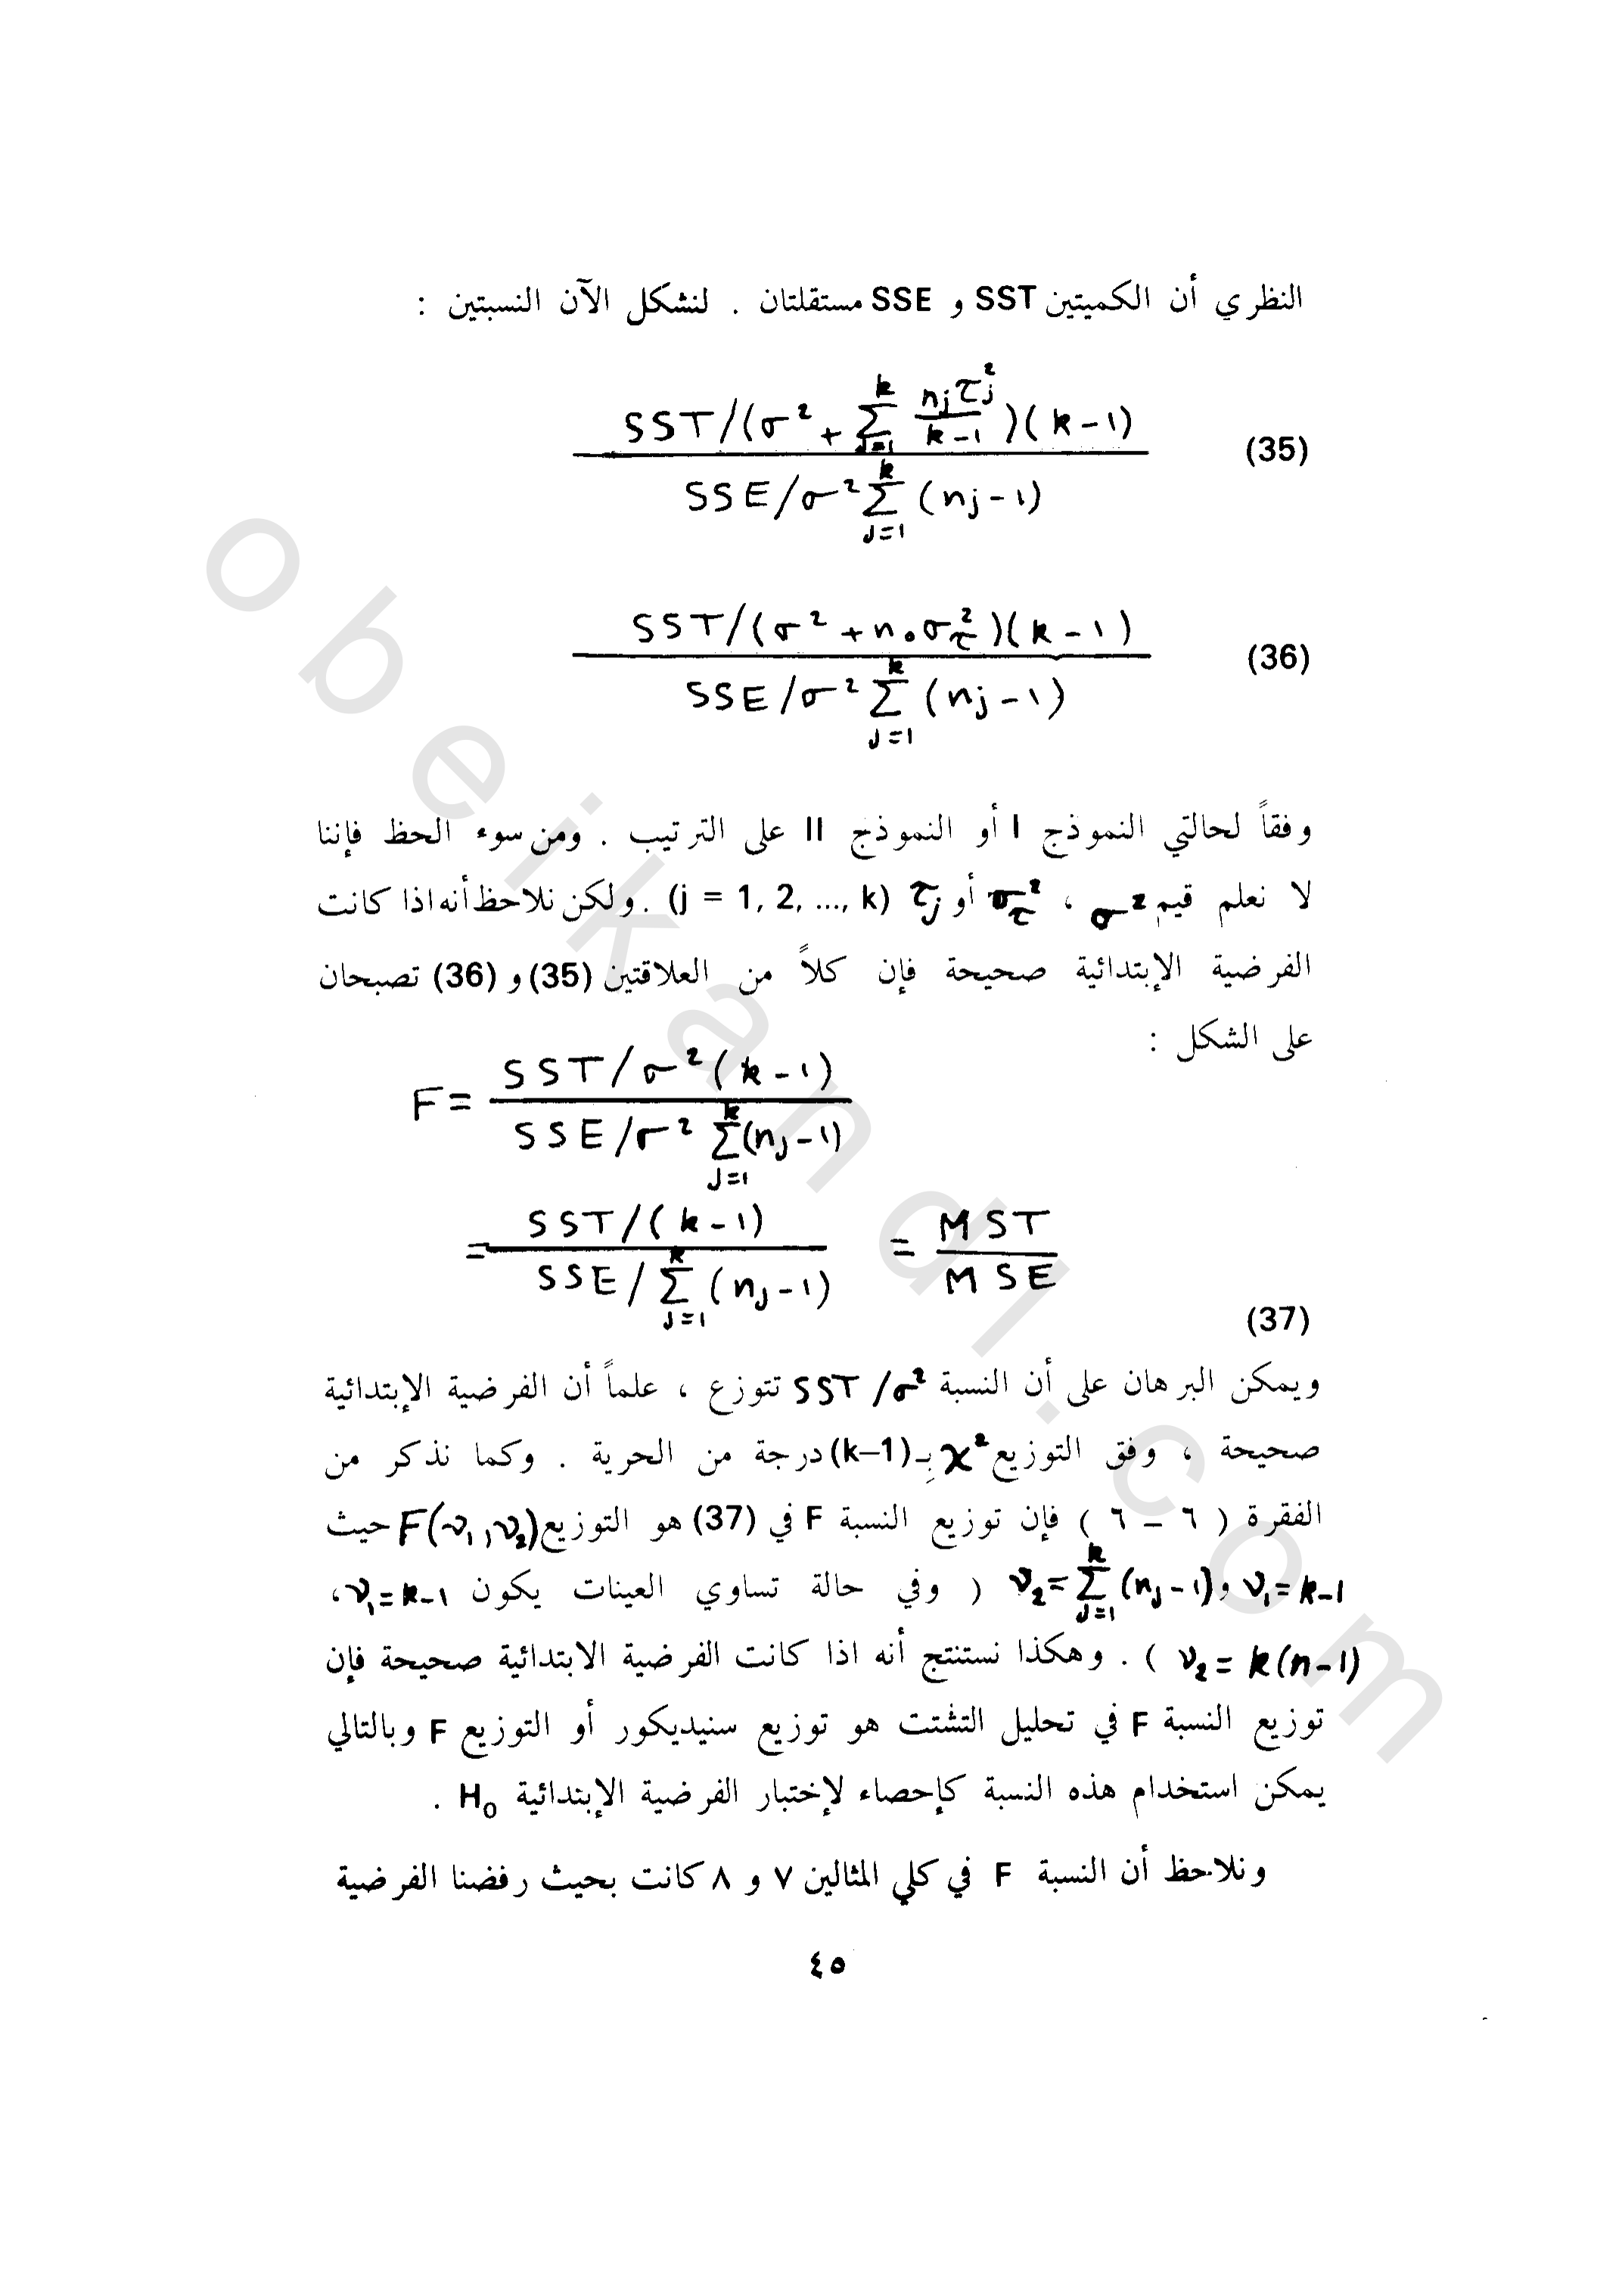 النظري أن الكميتين SST و SSE مستقلتان . لنشكل الآن النسبتين :
SST/(σ² + Σ_{j=1}^{k} n_j τ_j² / (k-1))(k-1)
SSE/σ² Σ_{j=1}^{k} (n_j-1)
(35)
SST/(σ² + n₀σ_τ²)(k-1)
SSE/σ² Σ_{j=1}^{k} (n_j-1)
(36)
وفقاً لحالتي النموذج I أو النموذج II على الترتيب . ومن سوء الحظ فإننا
لا نعلم قيم σ² ، σ_τ² أو τ_j (j = 1, 2, ..., k) . ولكن نلاحظ أنه اذا كانت
الفرضية الإبتدائية صحيحة فإن كلاً من العلاقتين (35) و (36) تصبحان
على الشكل :
F = SST/σ²(k-1)
SSE/σ² Σ_{j=1}^{k}(n_j-1)
= SST/(k-1) = MST
SSE/Σ_{j=1}^{k}(n_j-1) MSE
(37)
ويمكن البرهان على أن النسبة SST/σ² تتوزع ، علماً أن الفرضية الإبتدائية
صحيحة ، وفق التوزيع χ² بِـ (k–1) درجة من الحرية . وكما نذكر من
الفقرة ( ٦ – ٦ ) فإن توزيع النسبة F في (37) هو التوزيع F(ν₁,ν₂) حيث
ν₁=k-1 و ν₂=Σ_{j=1}^{k}(n_j-1) ( وفي حالة تساوي العينات يكون ν₁=k-1 ،
ν₂=k(n-1) ) . وهكذا نستنتج أنه اذا كانت الفرضية الابتدائية صحيحة فإن
توزيع النسبة F في تحليل التشتت هو توزيع سنيديكور أو التوزيع F وبالتالي
يمكن استخدام هذه النسبة كإحصاء لإختبار الفرضية الإبتدائية H₀ .
ونلاحظ أن النسبة F في كلي المثالين ٧ و ٨ كانت بحيث رفضنا الفرضية
٤٥
obeikandl.com